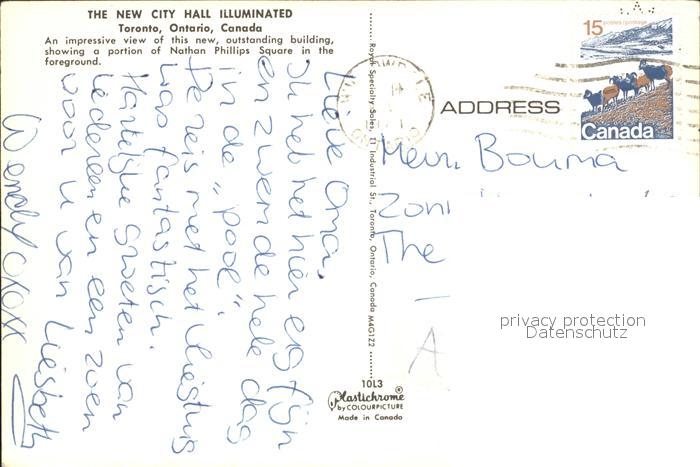 THE NEW CITY HALL ILLUMINATED
Toronto, Ontario, Canada
An impressive view of this new, outstanding building,
showing a portion of Nathan Phillips Square in the
foreground.
Lieve Oma,
Ik heb het hier erg fijn
en zwem de hele dag
in de "pool".
De reis met het vliegtuig
was fantastisch.
Hartelijke groeten van
iedereen en een zoen
voor u van Liesbeth
Wendy XOXX
Royal Specialty Sales, 11 Industrial St., Toronto, Ontario, Canada M4G1Z2
10L3
Plastichrome®
by COLOURPICTURE
Made in Canada
15 postes/postage
Canada
ADDRESS
Bouma
The
A
privacy protection
Datenschutz